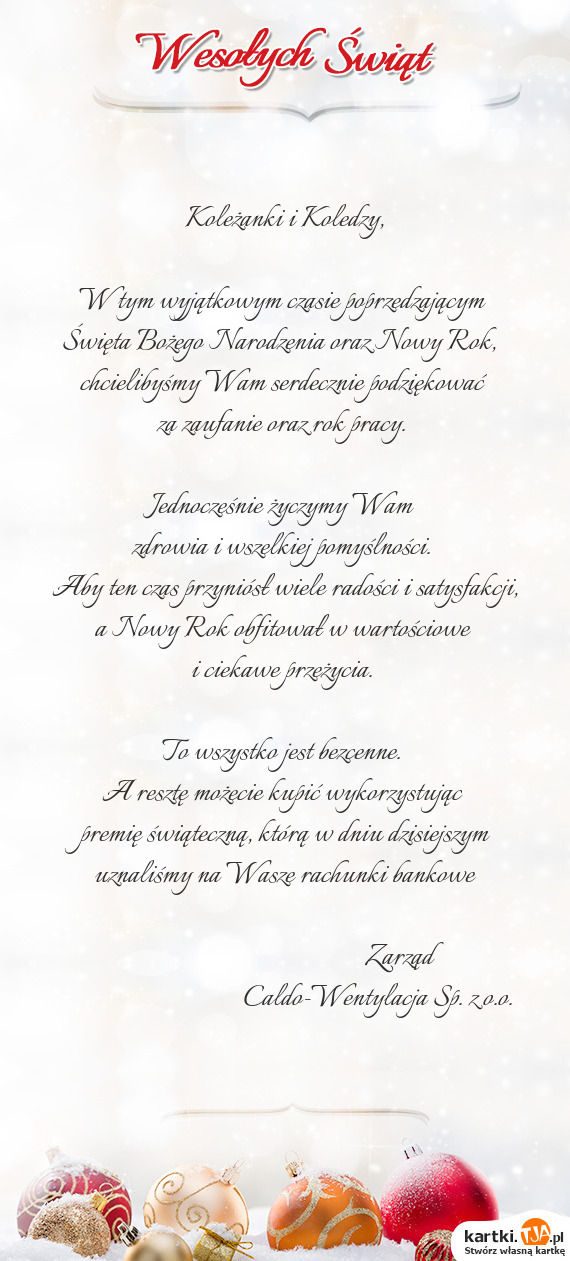 Wesołych Świąt
Koleżanki i Koledzy,
W tym wyjątkowym czasie poprzedzającym
Święta Bożego Narodzenia oraz Nowy Rok,
chcielibyśmy Wam serdecznie podziękować
za zaufanie oraz rok pracy.
Jednocześnie życzymy Wam
zdrowia i wszelkiej pomyślności.
Aby ten czas przyniósł wiele radości i satysfakcji,
a Nowy Rok obfitował w wartościowe
i ciekawe przeżycia.
To wszystko jest bezcenne.
A resztę możecie kupić wykorzystując
premię świąteczną, którą w dniu dzisiejszym
uznaliśmy na Wasze rachunki bankowe
Zarząd
Caldo-Wentylacja Sp. z o.o.
kartki.TJA.pl
Stwórz własną kartkę